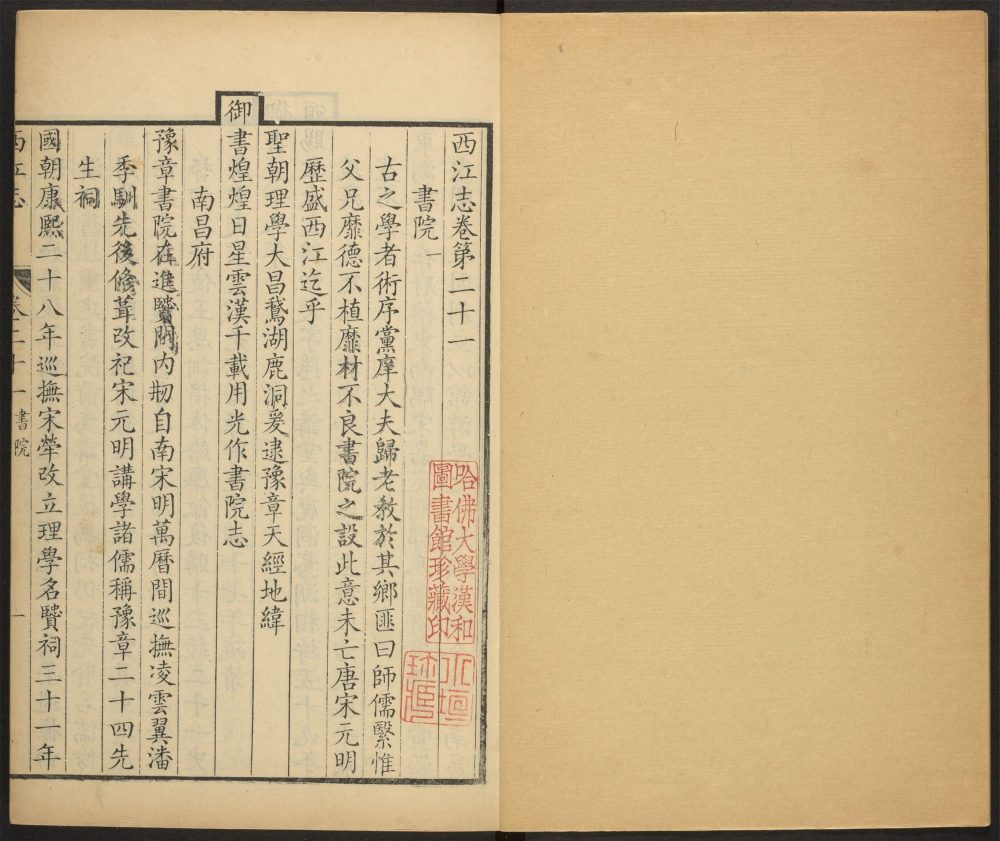 西江志卷第二十一
書院一
古之學者術序黨庠大夫歸老教於其鄉匪曰師儒繄惟
父兄靡德不植靡材不良書院之設此意未亡唐宋元明
歷盛西江迄乎
聖朝理學大昌鵝湖鹿洞爰逮豫章天經地緯
御書煌煌日星雲漢千載用光作書院志
南昌府
豫章書院在進賢門内剏自南宋明萬曆間巡撫凌雲翼潘
季馴先後修葺改祀宋元明講學諸儒稱豫章二十四先
生祠
國朝康熙二十八年巡撫宋犖改立理學名賢祠三十一年
西江志
卷二十一 書院
一
哈佛大學漢和
圖書館珍藏印